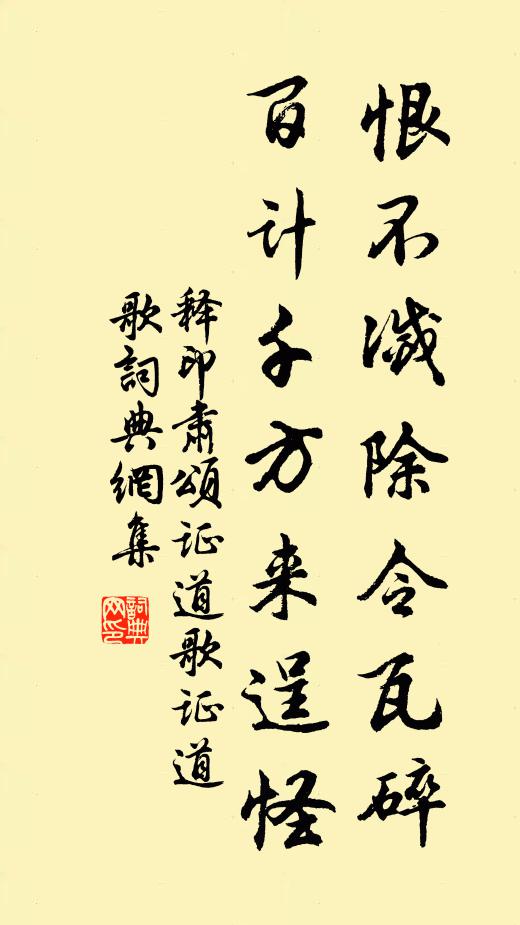 恨不滅除令瓦碎
百计千方来逞怪
释印肃颂证道歌证道
歌詞典網集
詞典
网印